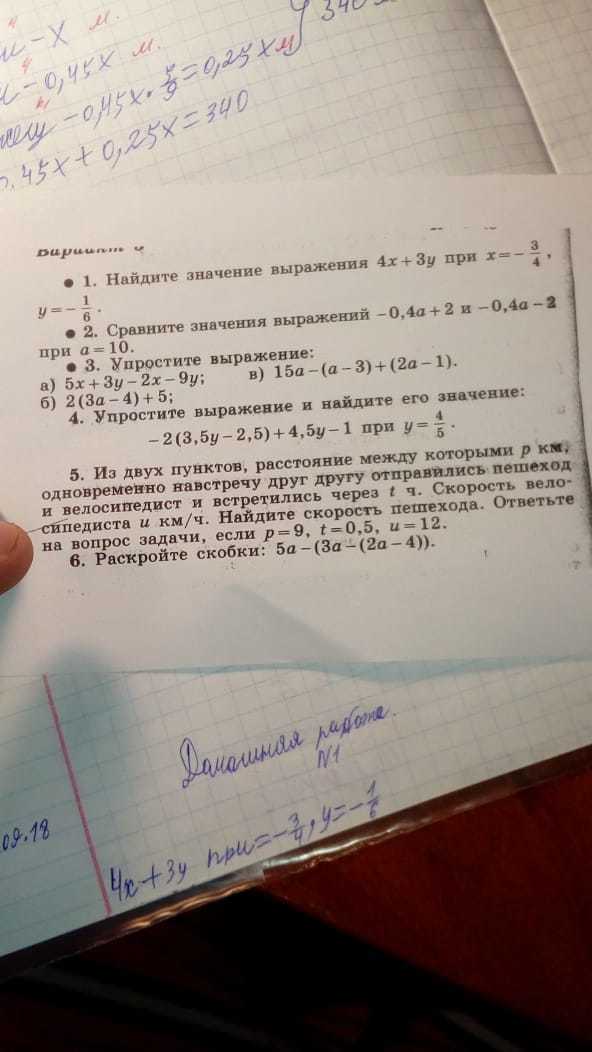 – x м.
– 0,45x м.
– 0,45x · 5/9 = 0,25x м
340
0,45x + 0,25x = 340
Вариант
• 1. Найдите значение выражения 4x + 3y при x = – 3/4 ,
y = – 1/6 .
• 2. Сравните значения выражений –0,4a + 2 и –0,4a – 2
при a = 10.
• 3. Упростите выражение:
а) 5x + 3y – 2x – 9y; в) 15a – (a – 3) + (2a – 1).
б) 2(3a – 4) + 5;
4. Упростите выражение и найдите его значение:
–2(3,5y – 2,5) + 4,5y – 1 при y = 4/5 .
5. Из двух пунктов, расстояние между которыми p км,
одновременно навстречу друг другу отправились пешеход
и велосипедист и встретились через t ч. Скорость вело-
сипедиста u км/ч. Найдите скорость пешехода. Ответьте
на вопрос задачи, если p = 9, t = 0,5, u = 12.
6. Раскройте скобки: 5a – (3a – (2a – 4)).
Домашняя работа.
N1
09.18
4x + 3y при = – 3/4, y = – 1/6